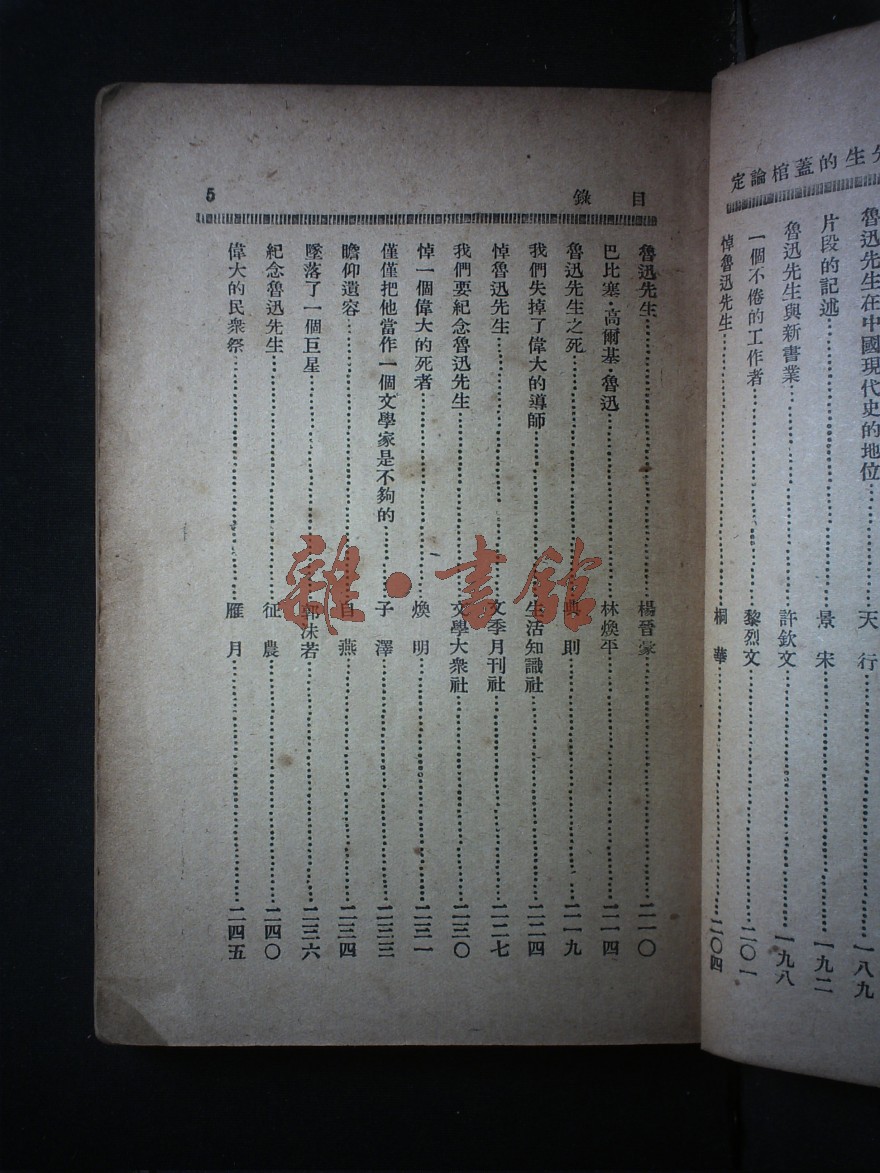 先生的蓋棺論定
魯迅先生在中國現代史的地位……天行……一八九
片段的記述……景宋……一九二
魯迅先生與新書業……許欽文……一九八
一個不倦的工作者……黎烈文……二〇一
悼魯迅先生……桐華……二〇四
目錄 5
魯迅先生……楊晉豪……二一〇
巴比塞·高爾基·魯迅……林煥平……二一四
魯迅先生之死……典則……二一九
我們失掉了偉大的導師……生活知識社……二二四
悼魯迅先生……文季月刊社……二二七
我們要紀念魯迅先生……文學大衆社……二三〇
悼一個偉大的死者……煥明……二三一
僅僅把他當作一個文學家是不夠的……子澤……二三三
瞻仰遺容……自燕……二三四
墜落了一個巨星……郭沫若……二三六
紀念魯迅先生……征農……二四〇
偉大的民衆祭……雁月……二四五
雜·書館